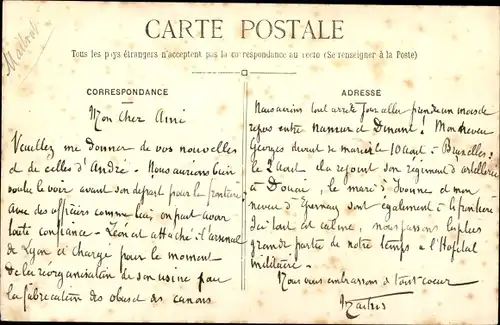 Maitrot
CARTE POSTALE
Tous les pays étrangers n'acceptent pas la correspondance au recto (Se renseigner à la Poste)
CORRESPONDANCE
Mon Cher Ami
Veuillez me donner de vos nouvelles
et de celles d'André - Nous aurions bien
voulu le voir avant son départ pour la frontière
avec des officiers comme lui, on peut avoir
toute confiance - Léon est attaché à l'arsenal
de Lyon et chargé pour le moment
de la réorganisation de son usine pour
la fabrication des obus et des canons
ADRESSE
Nous avions tout arrêté pour aller prendre un mois de
repos entre Namur et Dinant! Mon neveu
Georges devait se marier le 10 août à Bruxelles;
le 2 août il a rejoint son régiment d'artillerie
à Douai, le mari d'Yvonne et mon
neveu d'Epernay sont également à la frontière
Ici tout est calme, nous passons la plus
grande partie de notre temps à l'Hôpital
militaire -
Nous vous embrassons de tout coeur